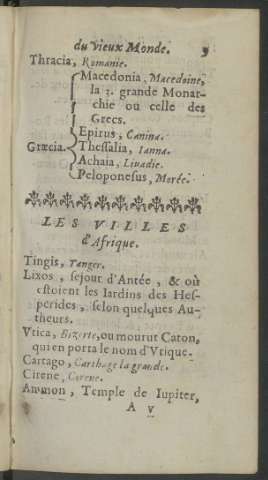 du vieux Monde. 9
Thracia, Romanie.
Macedonia, Macedoine,
la 3. grande Monar-
chie ou celle des
Grecs.
Epirus, Canina.
Græcia. Thessalia, Ianna.
Achaia, Livadie.
Peloponesus, Morée.
LES VILLES
d'Afrique.
Tingis, Tanger.
Lixos, sejour d'Antée, & où
estoient les Iardins des Hes-
perides, selon quelques Au-
theurs.
Vtica, Bizerte, ou mourut Caton,
qui en porta le nom d'Vtique.
Cartago, Carthage la grande.
Cirene, Corene.
Ammon, Temple de Iupiter,
A v